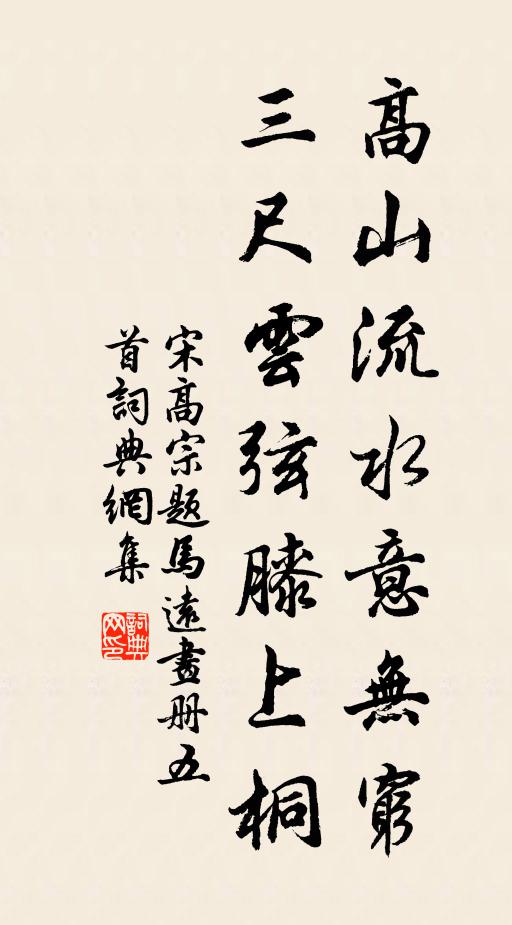 高山流水意無窮
三尺雲弦膝上桐
宋高宗題馬遠畫册五
首詞典網集
詞典网印